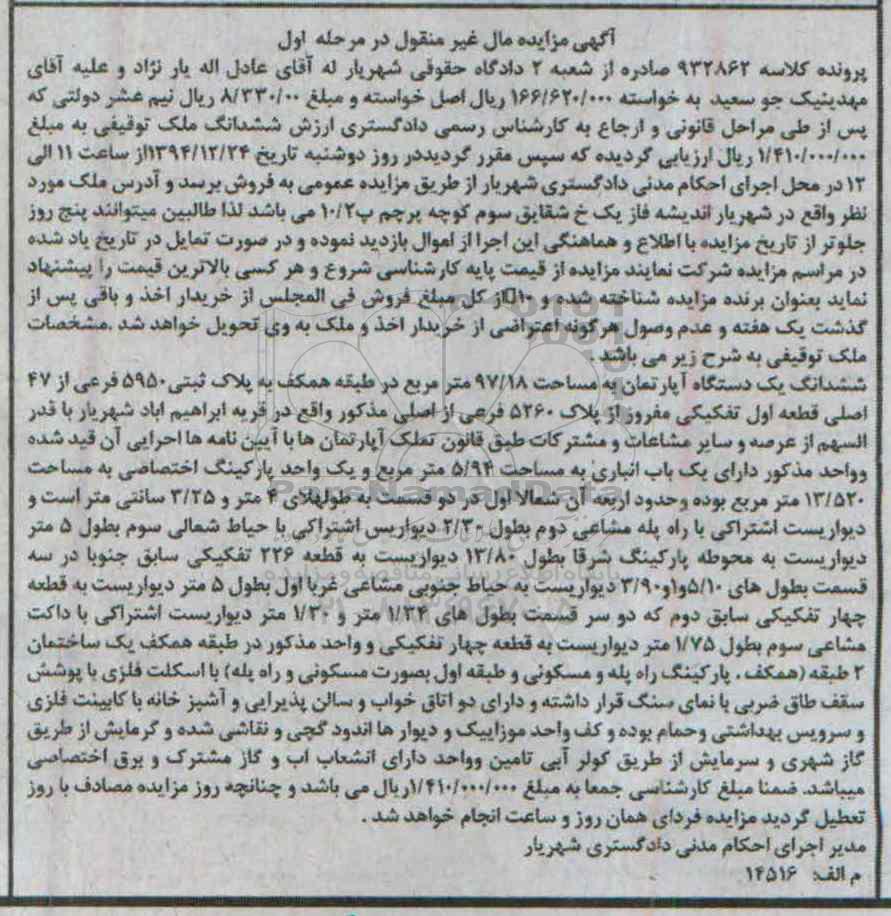 آگهی مزایده مال غیر منقول در مرحله اول
پرونده کلاسه ۹۳۲۸۶۲ صادره از شعبه ۲ دادگاه حقوقی شهریار له آقای عادل اله یار نژاد و علیه آقای
مهدینیک جو سعید به خواسته ۱۶۶/۶۲۰/۰۰۰ ریال اصل خواسته و مبلغ ۸/۳۳۰/۰۰ ریال نیم عشر دولتی که
پس از طی مراحل قانونی و ارجاع به کارشناس رسمی دادگستری ارزش ششدانگ ملک توقیفی به مبلغ
۱/۴۱۰/۰۰۰/۰۰۰ ریال ارزیابی گردیده که سپس مقرر گردیددر روز دوشنبه تاریخ ۱۳۹۴/۱۲/۲۴از ساعت ۱۱ الی
۱۲ در محل اجرای احکام مدنی دادگستری شهریار از طریق مزایده عمومی به فروش برسد و آدرس ملک مورد
نظر واقع در شهریار اندیشه فاز یک خ شقایق سوم کوچه پرچم پ۱۰/۲ می باشد لذا طالبین میتوانند پنج روز
جلوتر از تاریخ مزایده با اطلاع و هماهنگی این اجرا از اموال بازدید نموده و در صورت تمایل در تاریخ یاد شده
در مراسم مزایده شرکت نمایند مزایده از قیمت پایه کارشناسی شروع و هر کسی بالاترین قیمت را پیشنهاد
نماید بعنوان برنده مزایده شناخته شده و ۱۰از کل مبلغ فروش فی المجلس از خریدار اخذ و باقی پس از
گذشت یک هفته و عدم وصول هرگونه اعتراضی از خریدار اخذ و ملک به وی تحویل خواهد شد .مشخصات
ملک توقیفی به شرح زیر می باشد .
ششدانگ یک دستگاه آپارتمان به مساحت ۹۷/۱۸ متر مربع در طبقه همکف به پلاک ثبتی۵۹۵۰ فرعی از ۴۷
اصلی قطعه اول تفکیکی مفروز از پلاک ۵۲۶۰ فرعی از اصلی مذکور واقع در قریه ابراهیم اباد شهریار با قدر
السهم از عرصه و سایر مشاعات و مشترکات طبق قانون تملک آپارتمان ها با آیین نامه ها احرایی آن قید شده
وواحد مذکور دارای یک باب انباری به مساحت ۵/۹۴ متر مربع و یک واحد پارکینگ اختصاصی به مساحت
۱۳/۵۲۰ متر مربع بوده وحدود اربعه آن شمالا اول در دو قسمت به طولهلای ۴ متر و ۳/۲۵ سانتی متر است و
دیواریست اشتراکی با راه پله مشاعی دوم بطول ۲/۳۰ دیواریس اشتراکی با حیاط شمالی سوم بطول ۵ متر
دیواریست به محوطه پارکینگ شرقا بطول ۱۳/۸۰ دیواریست به قطعه ۲۲۶ تفکیکی سابق جنوبا در سه
قسمت بطول های ۵/۱۰و۱و۳/۹۰ دیواریست به حیاط جنوبی مشاعی غربا اول بطول ۵ متر دیواریست به قطعه
چهار تفکیکی سابق دوم که دو سر قسمت بطول های ۱/۳۴ متر و ۱/۳۰ متر دیواریست اشتراکی با داکت
مشاعی سوم بطول ۱/۷۵ متر دیواریست به قطعه چهار تفکیکی و واحد مذکور در طبقه همکف یک ساختمان
۲ طبقه (همکف ، پارکینگ راه پله و مسکونی و طبقه اول بصورت مسکونی و راه پله) با اسکلت فلزی با پوشش
سقف طاق ضربی با نمای سنگ قرار داشته و دارای دو اتاق خواب و سالن پذیرایی و آشپز خانه با کابینت فلزی
و سرویس بهداشتی وحمام بوده و کف واحد موزاییک و دیوار ها اندود گچی و نقاشی شده و گرمایش از طریق
گاز شهری و سرمایش از طریق کولر آبی تامین وواحد دارای انشعاب اب و گاز مشترک و برق اختصاصی
میباشد. ضمنا مبلغ کارشناسی جمعا به مبلغ ۱/۴۱۰/۰۰۰/۰۰۰ریال می باشد و چنانچه روز مزایده مصادف با روز
تعطیل گردید مزایده فردای همان روز و ساعت انجام خواهد شد .
مدیر اجرای احکام مدنی دادگستری شهریار
م الف: ۱۴۵۱۶
ParsNamadData